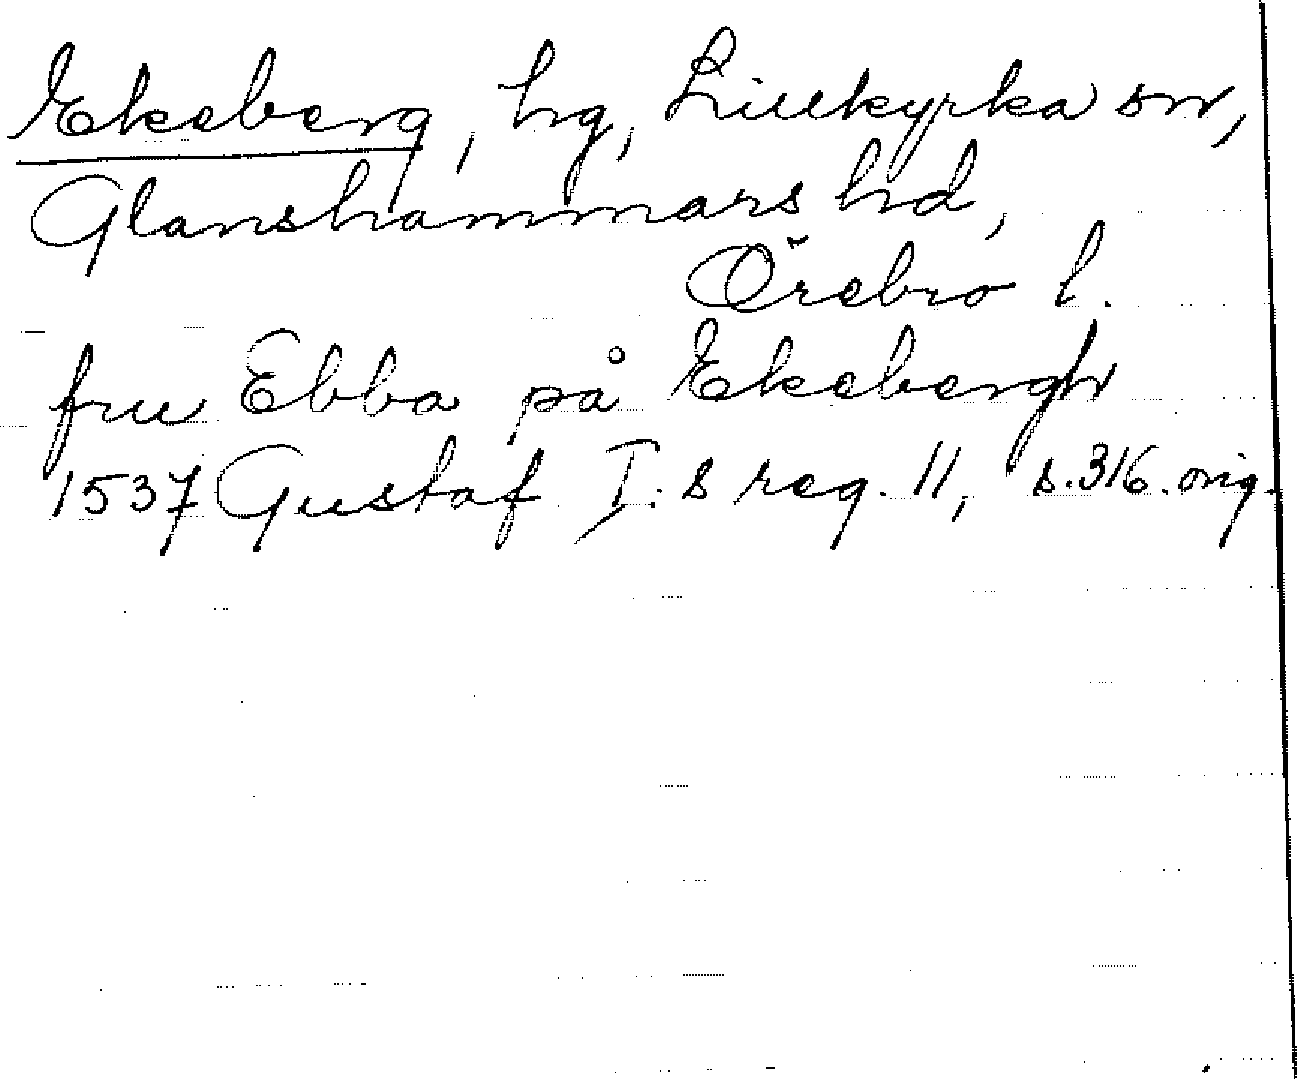 Ekeberg, hg, Lillkyrka sn,
Glanshammars hd,
Örebro l.
fru Ebba på Ekebergh
1537 Gustaf I:s reg. 11, s. 316. orig.